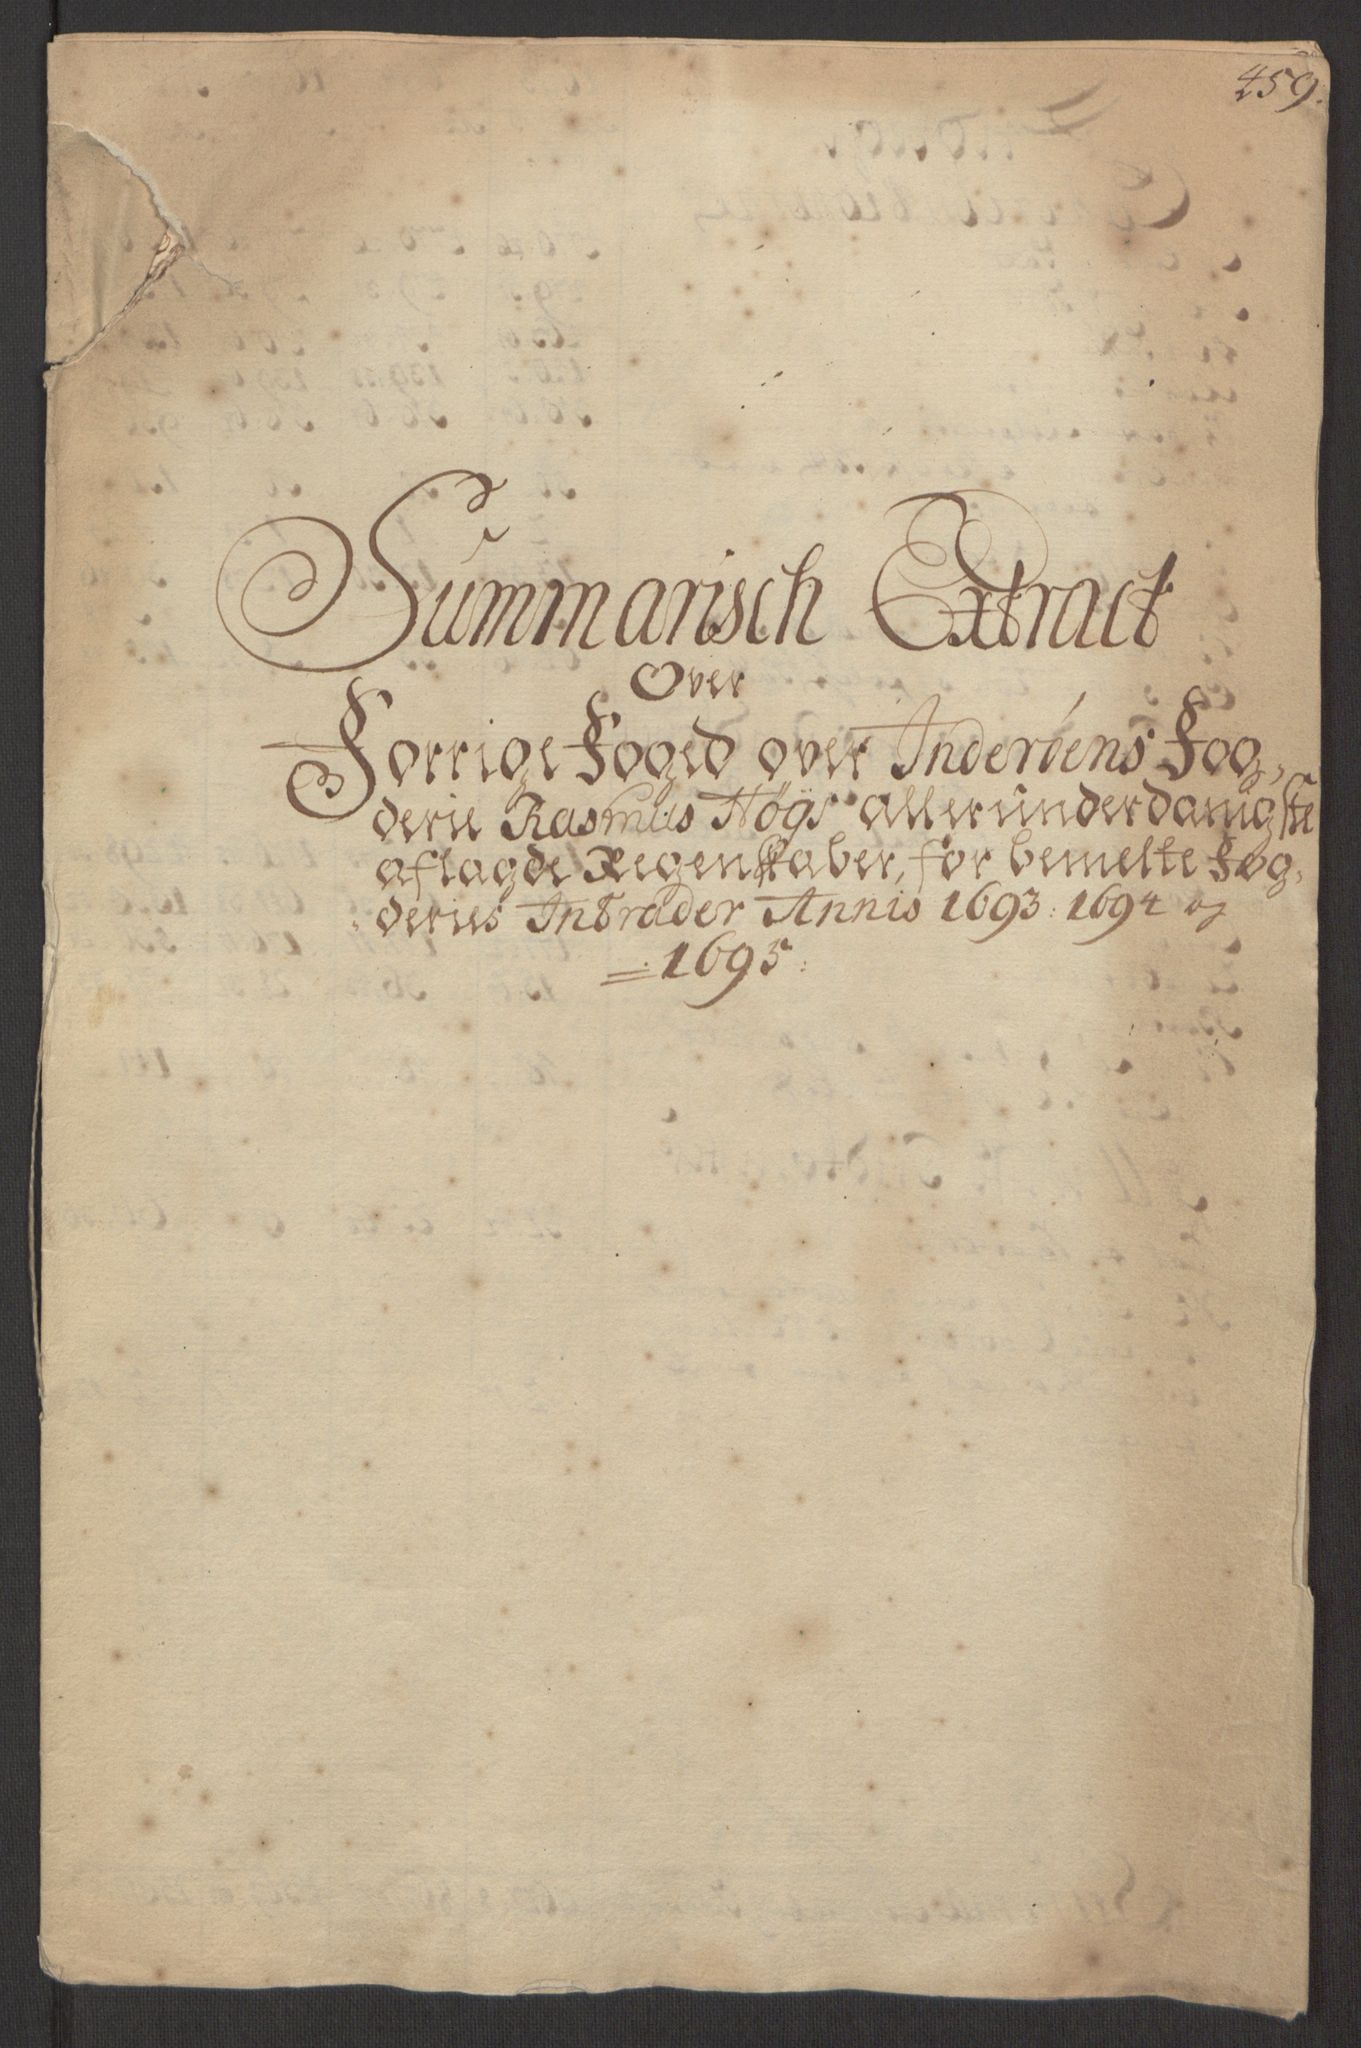 459.
Summarisch Extract
Over
Forrige Foged over Inderöens Fog,
derie Rasmus Höÿs allerunderdanigste
aflagde Regenskaber, for bemelte Fog,
deries Intrader Annis 1693: 1694 og
1695: